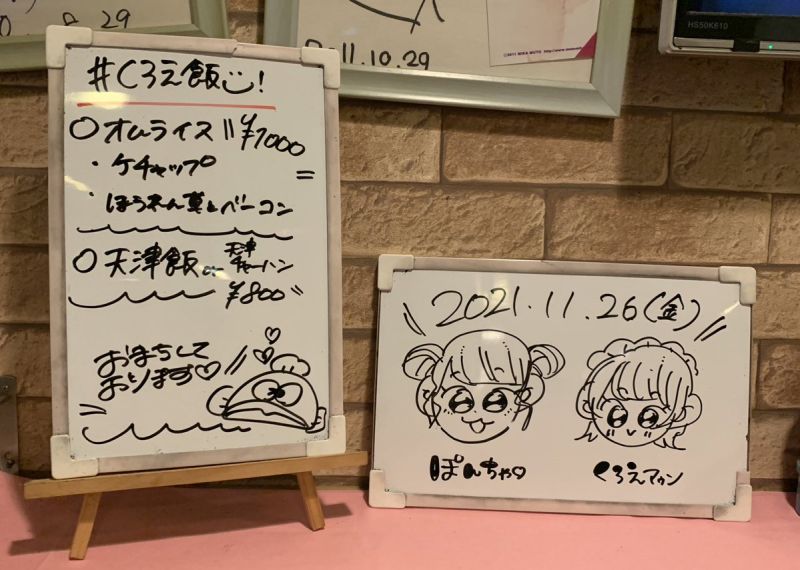 2011.10.29
HS50K610
#くろえ飯!
○オムライス ¥1000
・ケチャップ
・ほうれん草とベーコン
○天津飯 or 天津チャーハン
¥800
おまちして
おります♡
2021.11.26(金)
ぽんちゃ♡
くろえマァン